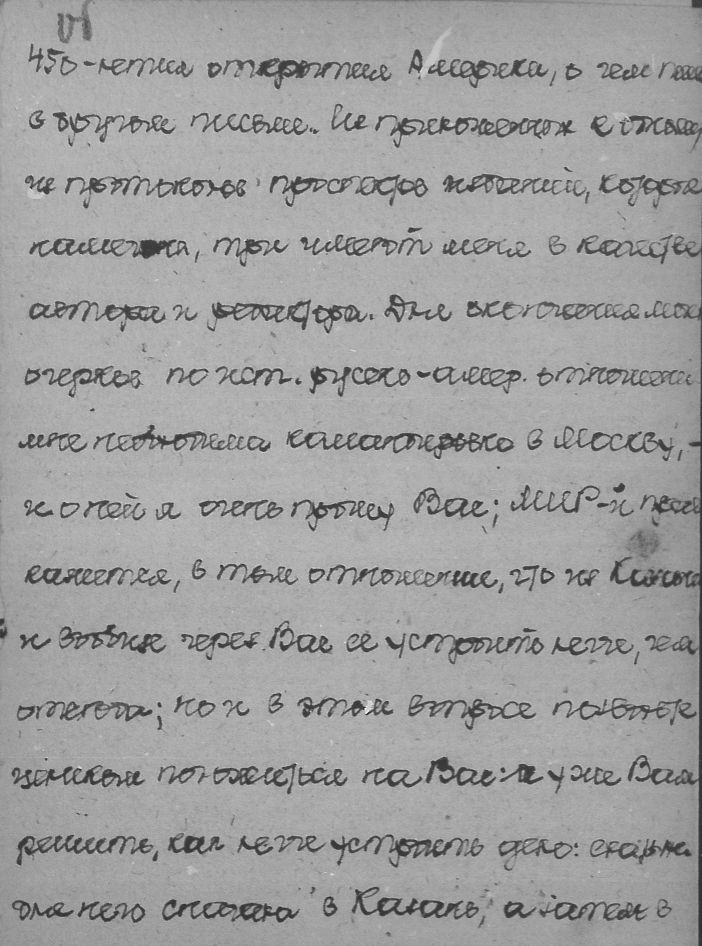 450-летия открытия Америки, о чем
в другом письме. Из приложенных к
же протоколов просмотров изданий, которые
намечены, при имеют меня в качестве
автора и редактора. Для окончания моих
очерков по ист. русско-амер. отношений
мне необходима командировка в Москву, –
и о ней я очень прошу Вас; МИР-й
кажется, в том отношении, что из Казани
и вообще через Вас ее устроить легче, чем
отсюда; но и в этом вопросе позвольте
целиком положиться на Вас: уже Вам
решить, как легче устроить дело:
для чего сначала в Казань, а затем в